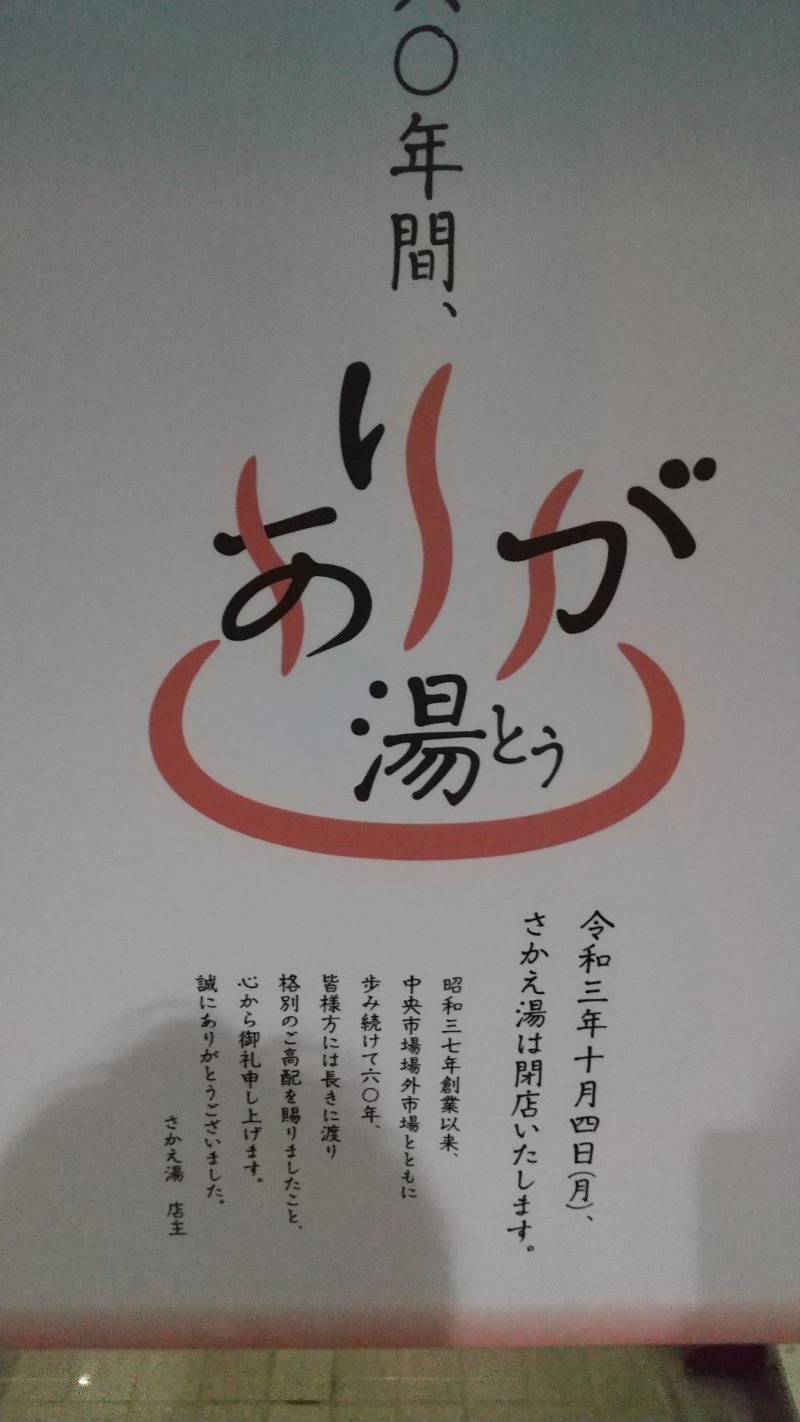 六〇年間、
ありが
湯とう
令和三年十月四日(月)、
さかえ湯は閉店いたします。
昭和三七年創業以来、
中央市場場外市場とともに
歩み続けて六〇年、
皆様方には長きに渡り
格別のご高配を賜りましたこと、
心から御礼申し上げます。
誠にありがとうございました。
さかえ湯 店主